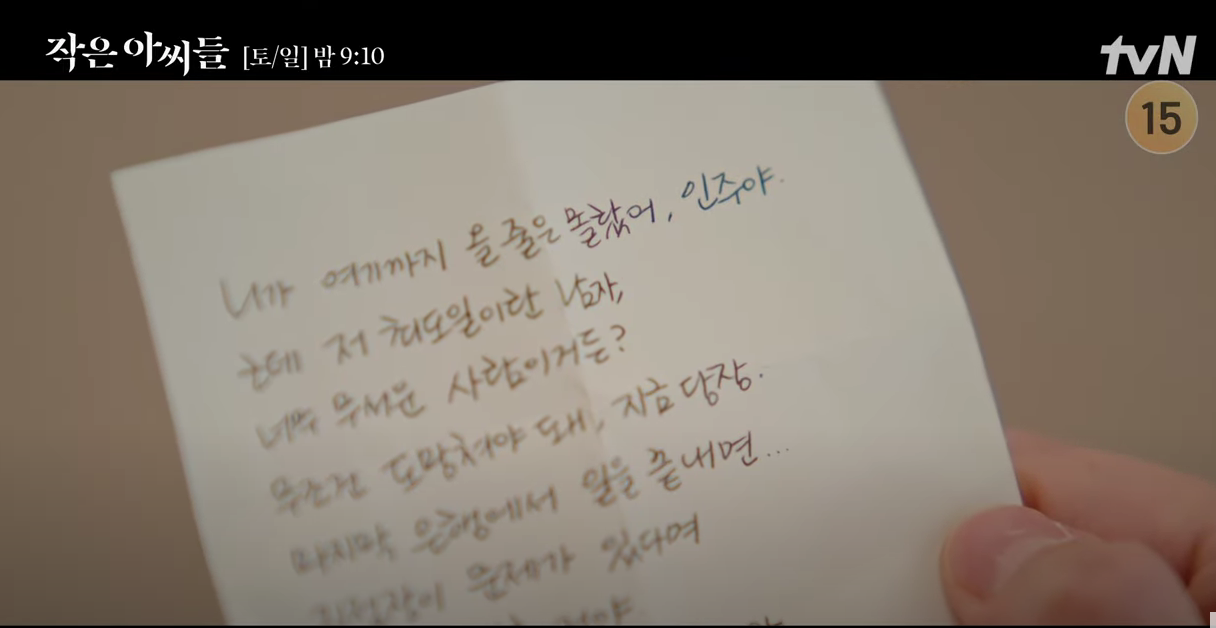 작은 아씨들 [토/일] 밤 9:10
tvN
15
니가 여기까지 올 줄은 몰랐어, 인주야.
근데 저 최도일이란 남자,
너무 무서운 사람이거든?
무조건 도망쳐야 돼, 지금 당장.
마지막 은행에서 일을 끝내면...
지점장이 문제가 있다며